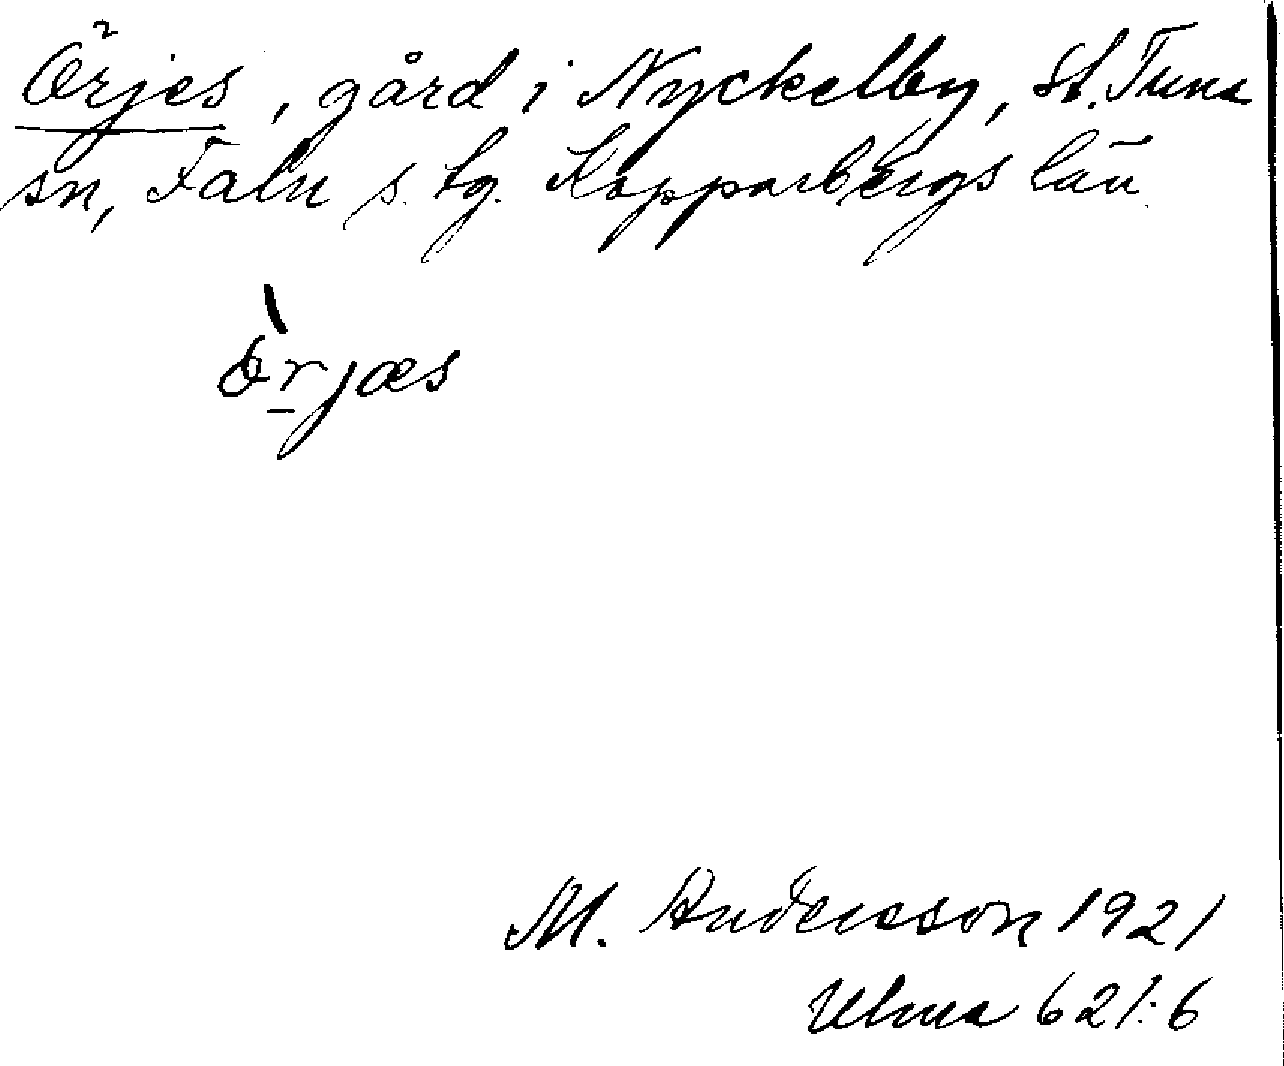 Örjes, gård i Nyckelby, St. Tuna
sn, Falu s. tg. Kopparbergs län
Òrjæs
M. Andersson 1921
Ulma 621:6